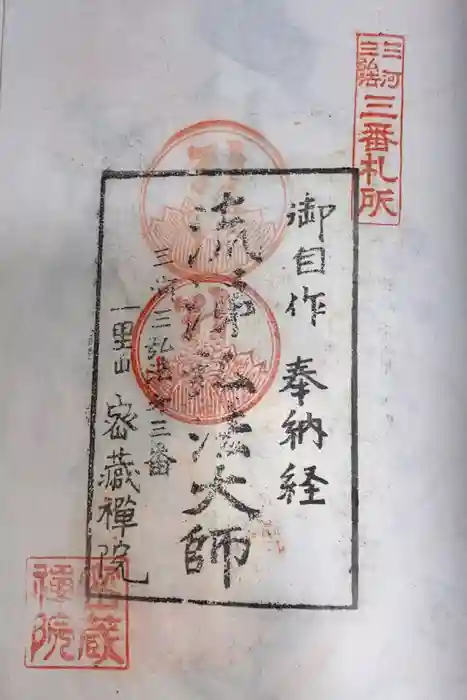 三河
三弘法
三番札所
御自作 奉納経
流涕弘法大師
三河三弘法第三番
一里山 密蔵禅院
密蔵
禅院